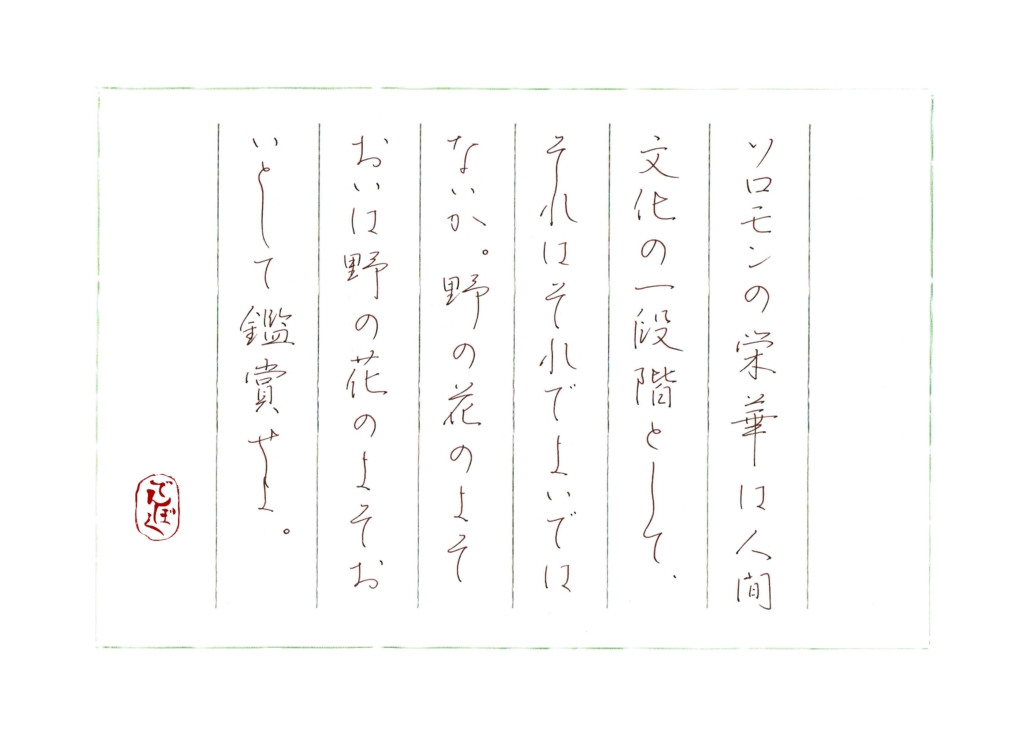 ソロモンの栄華は人間
文化の一段階として、
それはそれでよいでは
ないか。野の花のよそ
おいは野の花のよそお
いとして鑑賞せよ。